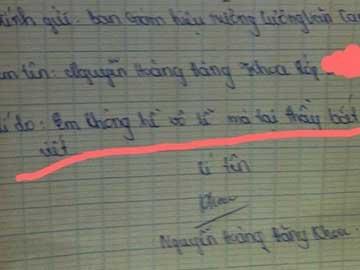 kính gửi: ban Giám hiệu trường Lương Văn Can
em tên: Nguyễn Hoàng Đăng Khoa lớp
lí do: Em không hề vô lễ mà tại thầy bắt
viết
kí tên
Khoa
Nguyễn Hoàng Đăng Khoa.